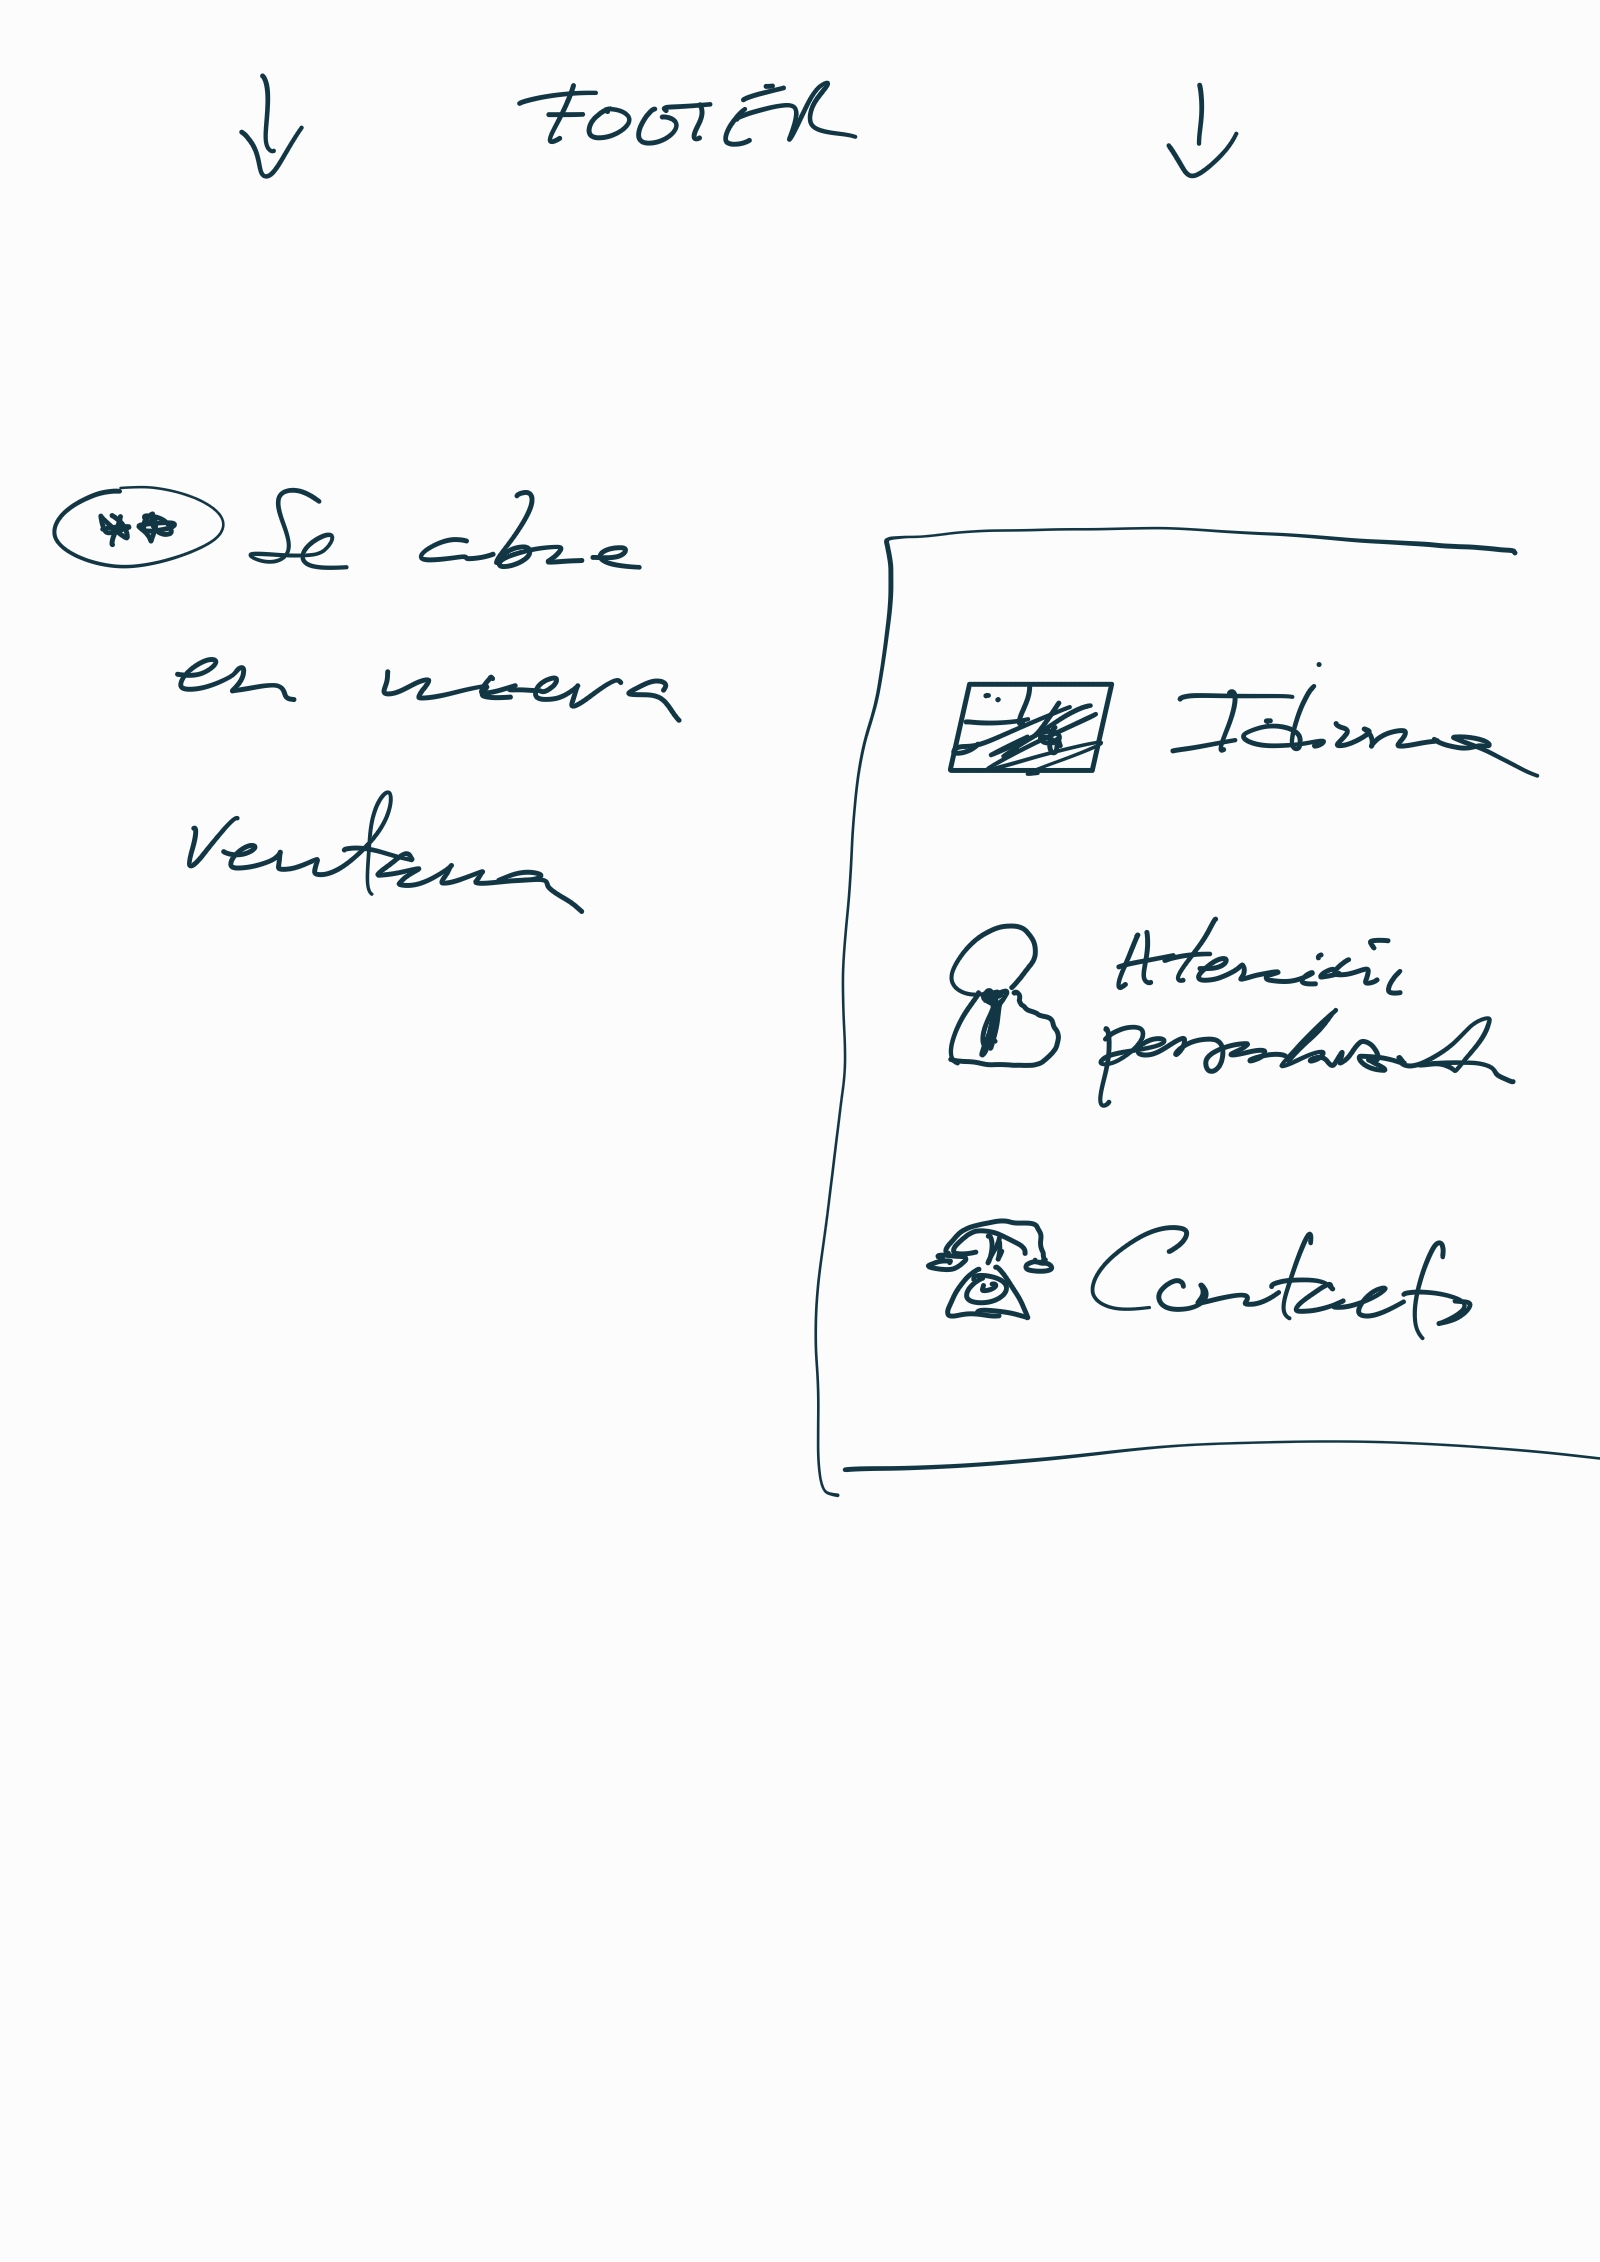 FOOTER
** Se abre
en nueva
ventana
Idioma
Atención
personalizada
Contacto